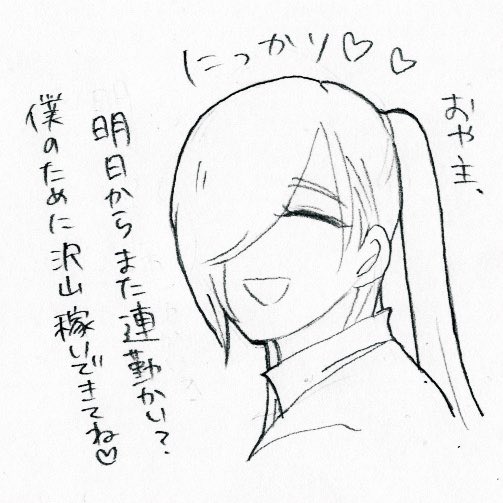 にっかり♡♡
おや主、
明日からまた連勤かい?
僕のために沢山稼いできてね♡